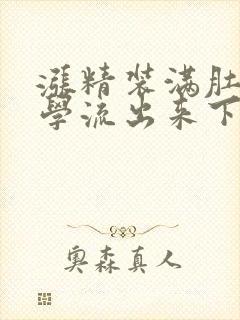 漲精装满肚
學流出来下
奥森真人